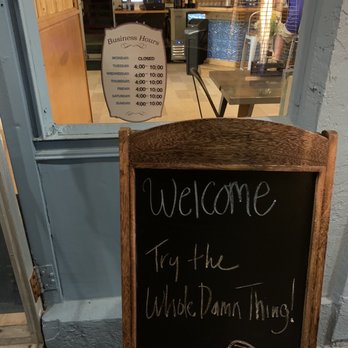 Business Hours
MONDAY: CLOSED
TUESDAY: 4:00 - 10:00
WEDNESDAY: 4:00 - 10:00
THURSDAY: 4:00 - 10:00
FRIDAY: 4:00 - 10:00
SATURDAY: 4:00 - 10:00
SUNDAY: 4:00 - 10:00
Welcome
Try the
Whole Damn Thing!